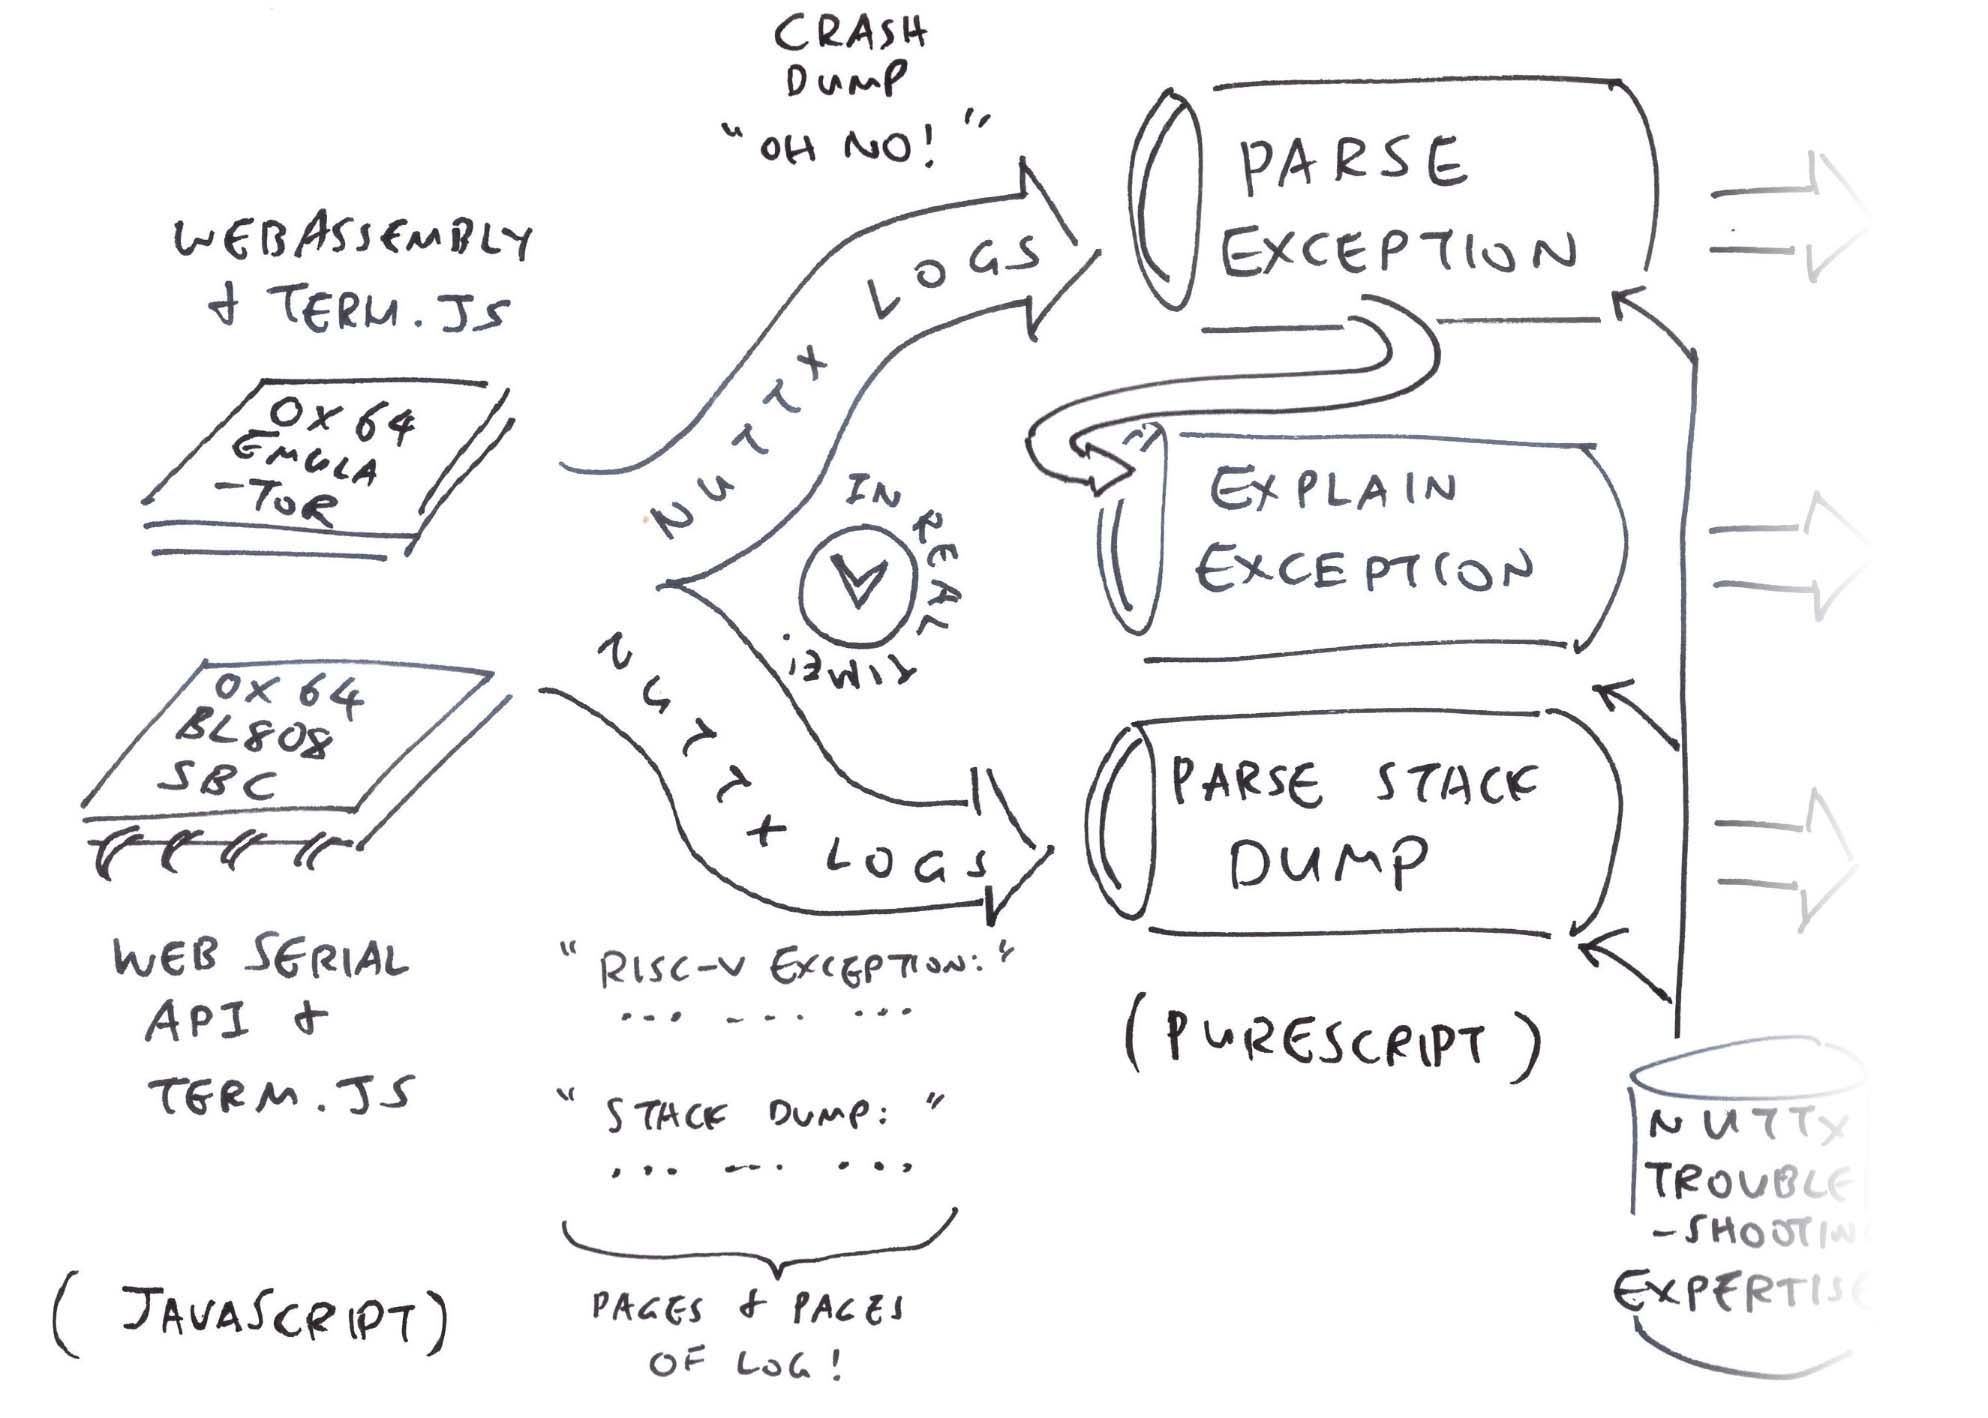 CRASH
DUMP
"OH NO!"
WEBASSEMBLY
& TERM.JS
OX64
EMULA
-TOR
NUTTX LOGS
PARSE
EXCEPTION
IN REAL TIME!
EXPLAIN
EXCEPTION
OX64
BL808
SBC
NUTTX LOGS
PARSE STACK
DUMP
WEB SERIAL
API &
TERM.JS
"RISC-V EXCEPTION:"
... ... ...
"STACK DUMP:"
... ... ...
(PURESCRIPT)
NUTTX
TROUBLE
-SHOOTIN
EXPERTISE
(JAVASCRIPT)
PAGES & PAGES
OF LOG!